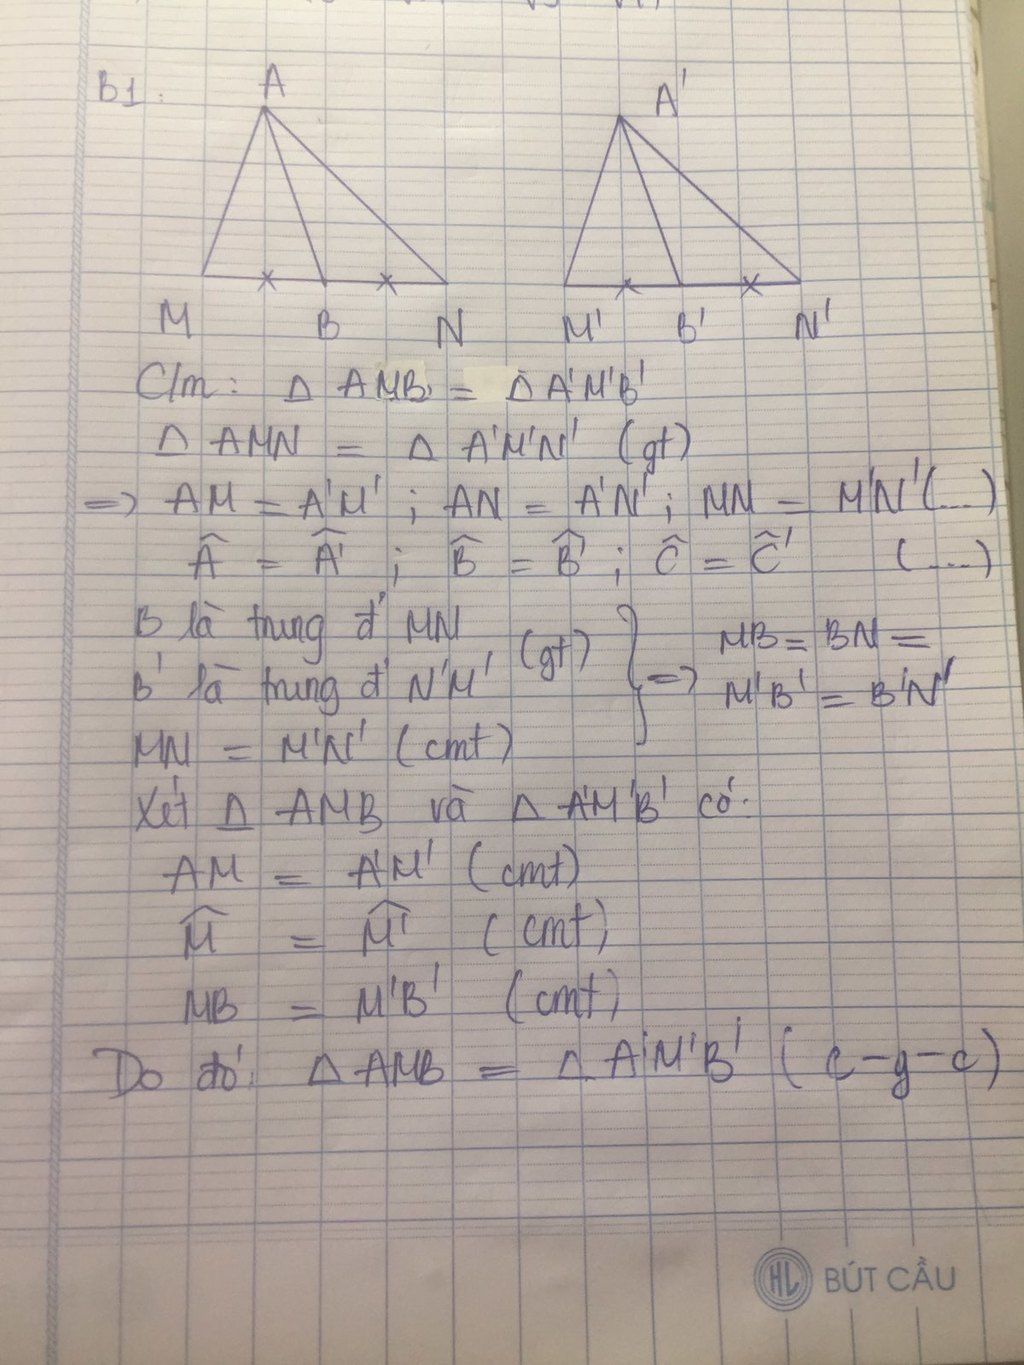 B1:
A
A'
M B N
M' B' N'
C/m: Δ AMB = Δ A'M'B'
Δ AMN = Δ A'M'N' (gt)
=> AM = A'M' ; AN = A'N' ; MN = M'N' (...)
Â = Â' ; B̂ = B̂' ; Ĉ = Ĉ' (...)
B là trung đ' MN
B' là trung đ' N'M' (gt)
MN = M'N' (cmt)
=> MB = BN =
M'B' = B'N'
Xét Δ AMB và Δ A'M'B' có:
AM = A'M' (cmt)
M̂ = M̂' (cmt)
MB = M'B' (cmt)
Do đó: Δ AMB = Δ A'M'B' (c-g-c)
HL BÚT CẦU